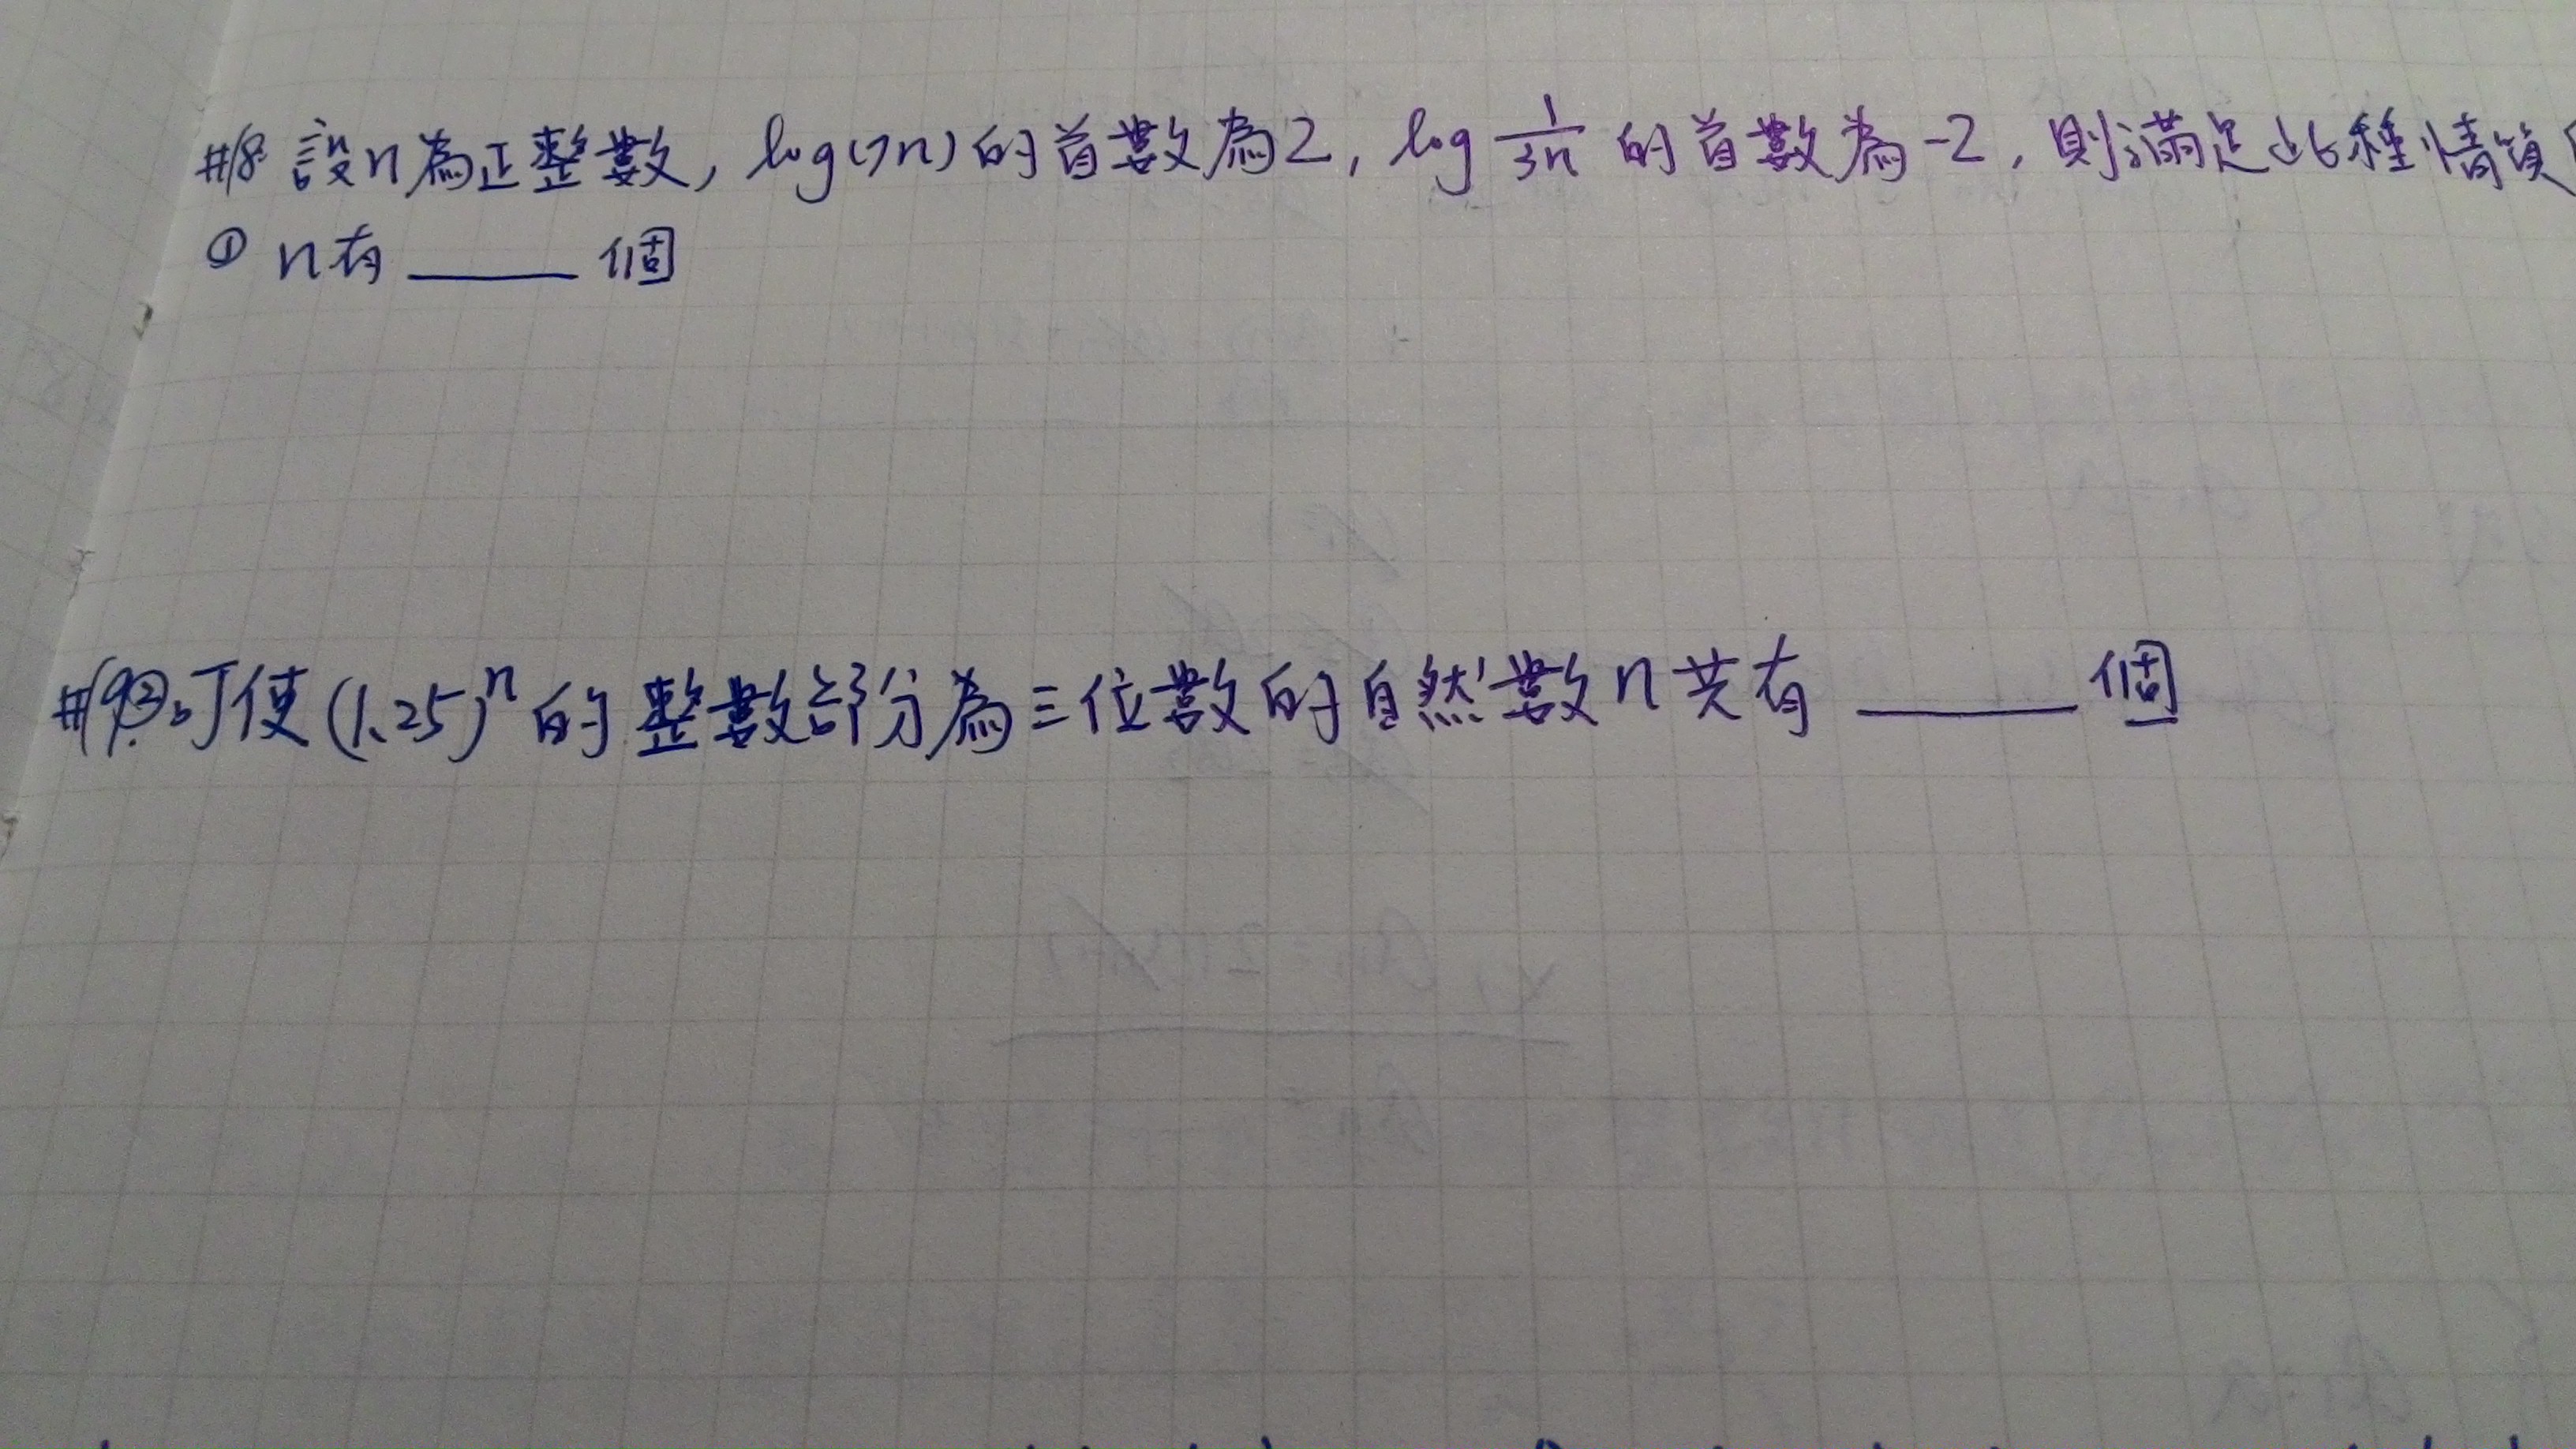 #18 設n為正整數, log(7n)的首數為2, log 1/3n 的首數為-2, 則滿足此種情負
① n有 ____ 個
#19②.可使(1.25)^n的整數部分為三位數的自然數n共有 ____ 個